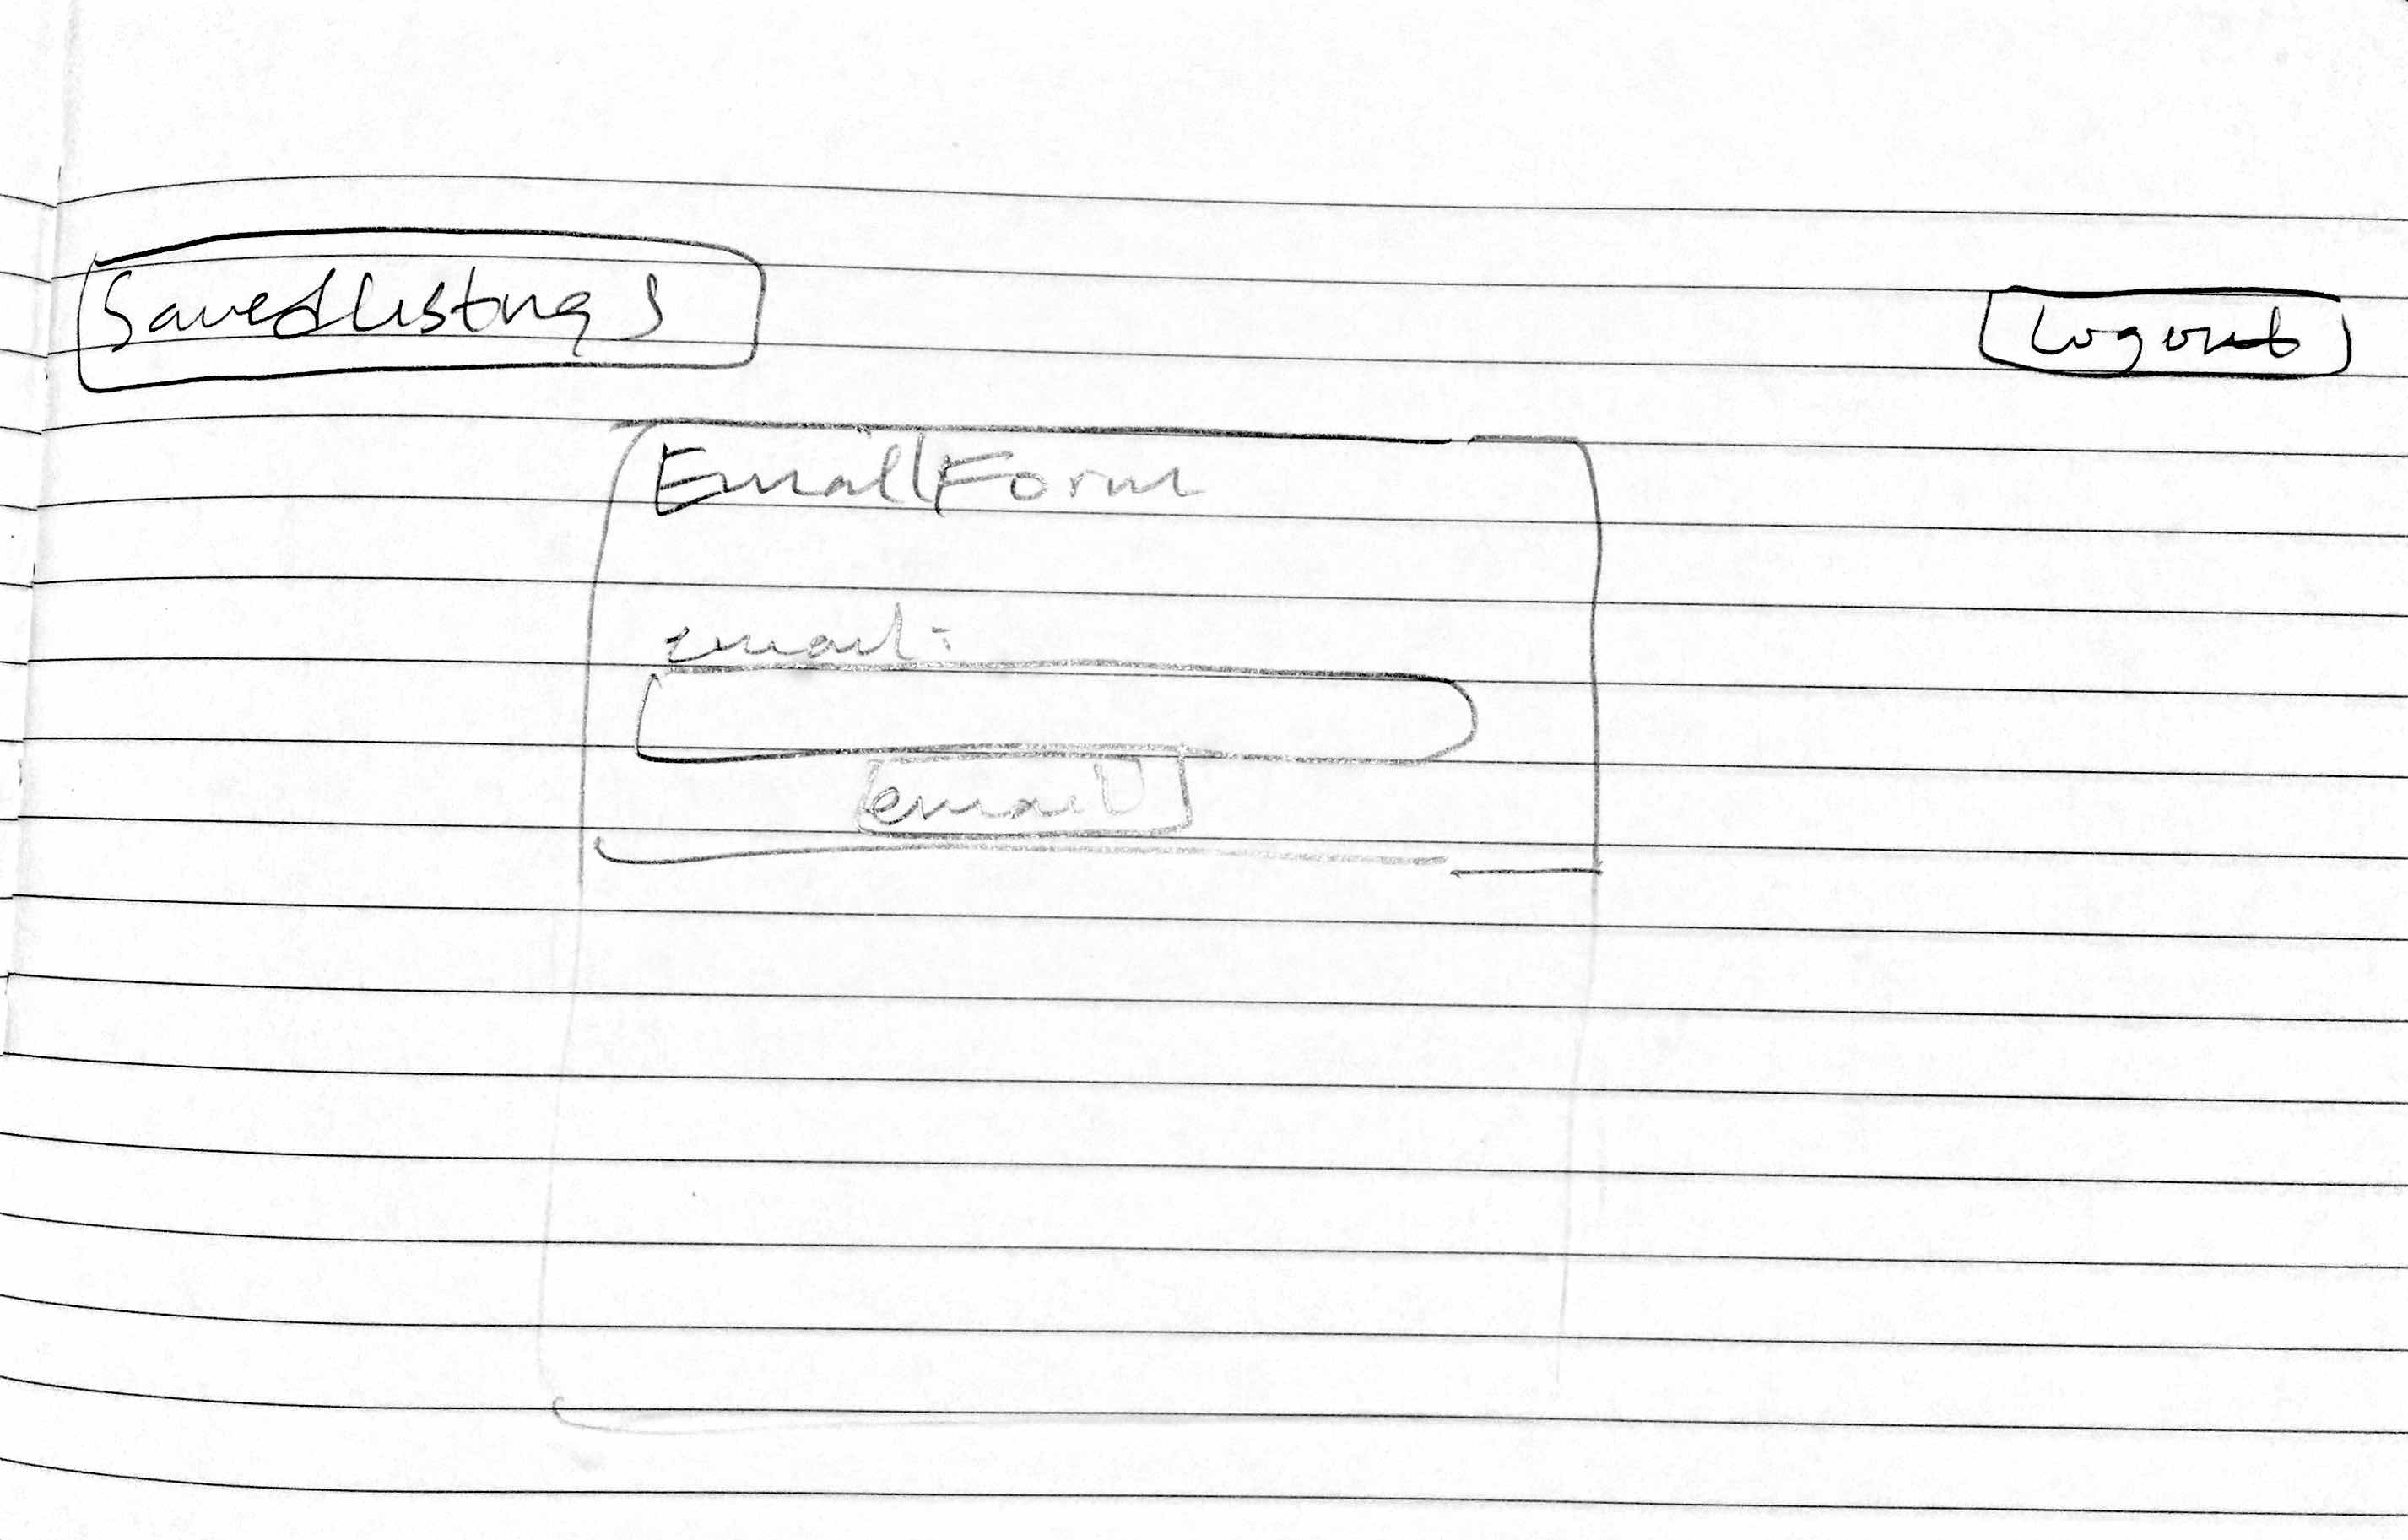 Saved listings
Logout
Email Form
email:
email